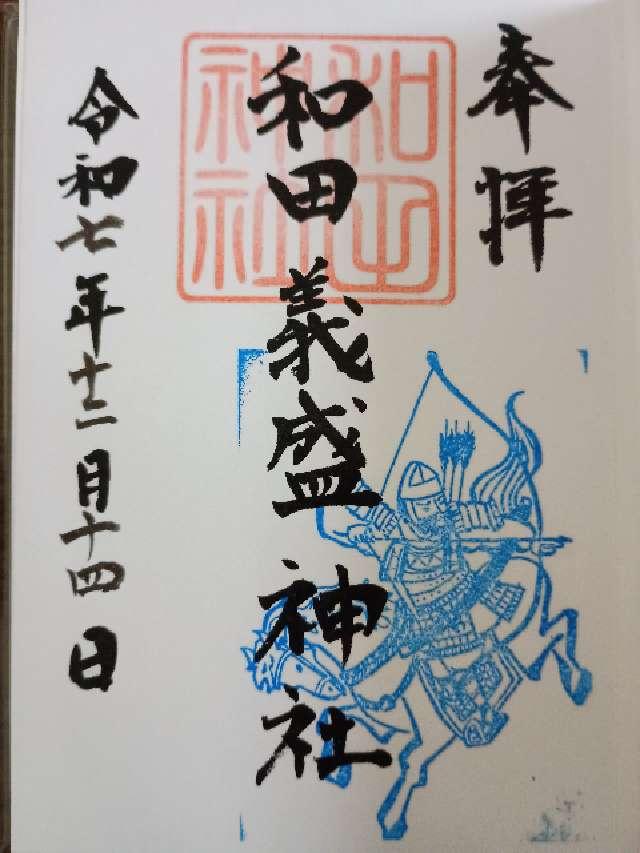 奉拝
和田義盛神社
和田神社
令和七年十二月十四日